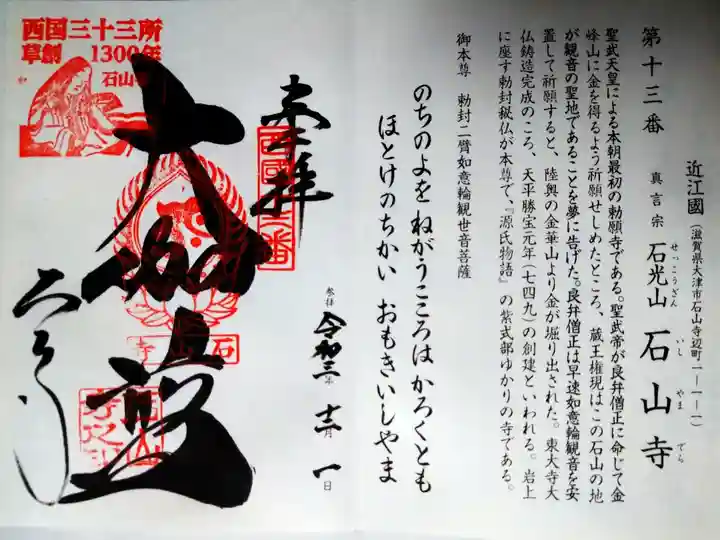 第十三番
近江國(滋賀県大津市石山寺辺町一ー一ー一)
真言宗 石光山 石山寺
せっこうざん いし やま でら
聖武天皇による本朝最初の勅願寺である。聖武帝が良弁僧正に命じて金
峰山に金を得るよう祈願せしめたところ、蔵王権現はこの石山の地
が観音の聖地であることを夢に告げた。良弁僧正は早速如意輪観音を安
置して祈願すると、陸奥の金華山より金が堀り出された。東大寺大
仏鋳造完成のころ、天平勝宝元年(七四九)の創建といわれる。岩上
に座す勅封秘仏が本尊で、『源氏物語』の紫式部ゆかりの寺である。
御本尊 勅封二臂如意輪観世音菩薩
のちのよを ねがうこころはかろくとも
ほとけのちかい おもきいしやま
参拝 令和三年 十二月 一日
奉拝
西國十三番
大伽藍
石山寺
西国三十三所
草創 1300年
石山寺